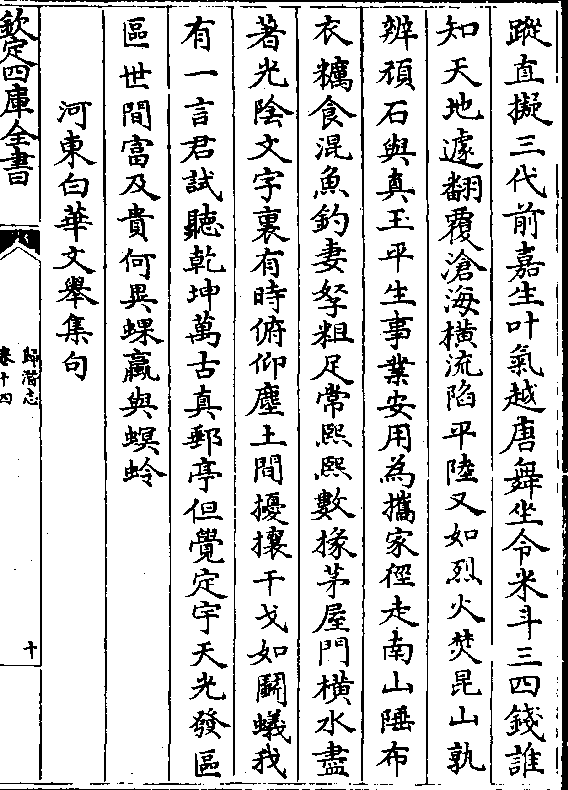 蹤直擬三代前嘉生叶氣越唐舞坐令米斗三四錢誰
知天地遽翻覆滄海橫流陷平陸又如烈火焚昆山孰
辨碩石與真玉平生事業安用為攜家徑走南山陲布
衣糲食混魚釣妻孥粗足常熙熙數椽茅屋門橫水盡
著光陰文字裏有時俯仰塵土間擾攘干戈如鬭蟻我
有一言君試聽乾坤萬古真郵亭但覺定宇天光發區
區世間富及貴何異蜾蠃與螟蛉
河東白華文舉集句
欽定四庫全書
歸潛志
卷十四
十